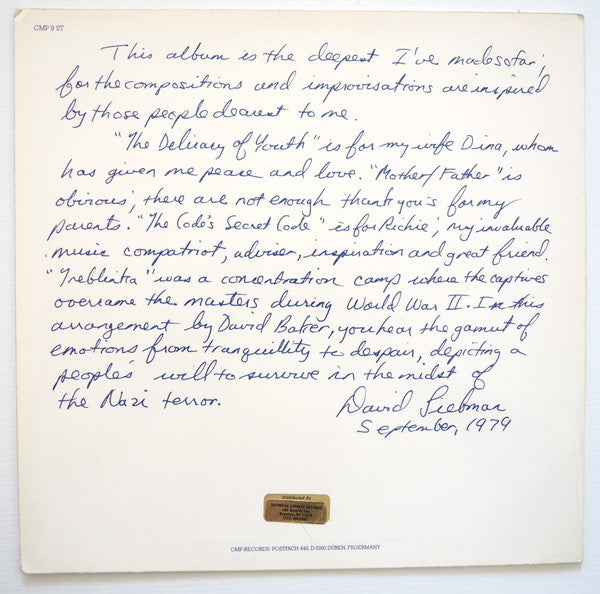 CMP 9 ST
This album is the deepest I've made so far;
for the compositions and improvisations are inspired
by those people dearest to me.
"The Delicacy of Youth" is for my wife Dina, whom
has given me peace and love. "Mother/Father" is
obvious; there are not enough thank you's for my
parents. "The Code's Secret Code" is for Richie, my invaluable
music compatriot, adviser, inspiration and great friend.
"Treblinka" was a concentration camp where the captives
overcame the masters during World War II. In this
arrangement by David Baker, you hear the gamut of
emotions from tranquillity to despair, depicting a
peoples' will to survive in the midst of
the Nazi terror.
David Liebman
September, 1979
Distributed By
CMP-RECORDS: POSTFACH 445, D-5160 DÜREN, FRGERMANY